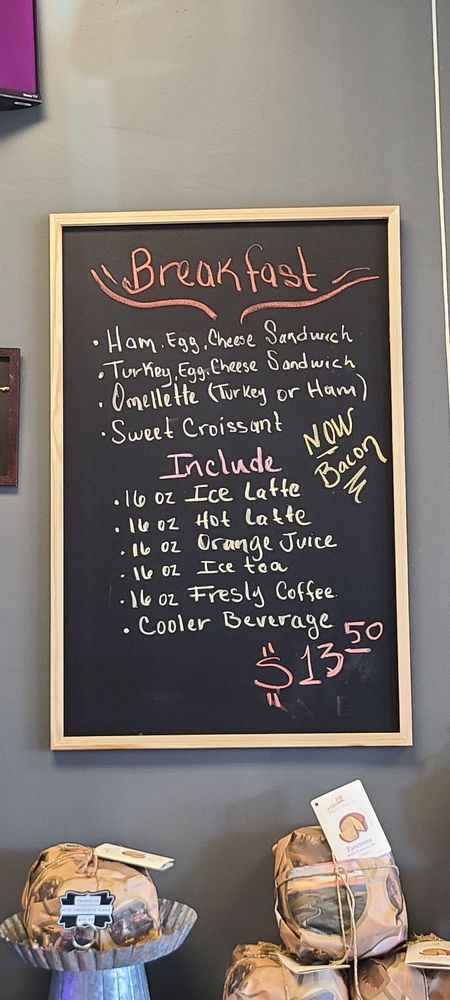 Breakfast
· Ham, Egg, Cheese Sandwich
· Turkey, Egg, Cheese Sandwich
· Omellette (Turkey or Ham)
· Sweet Croissant
NOW
Bacon
Include
· 16 oz Ice Latte
· 16 oz Hot Latte
· 16 oz Orange Juice
· 16 oz Ice tea
· 16 oz Fresly Coffee
· Cooler Beverage
$13.50
Panettone
Panettone